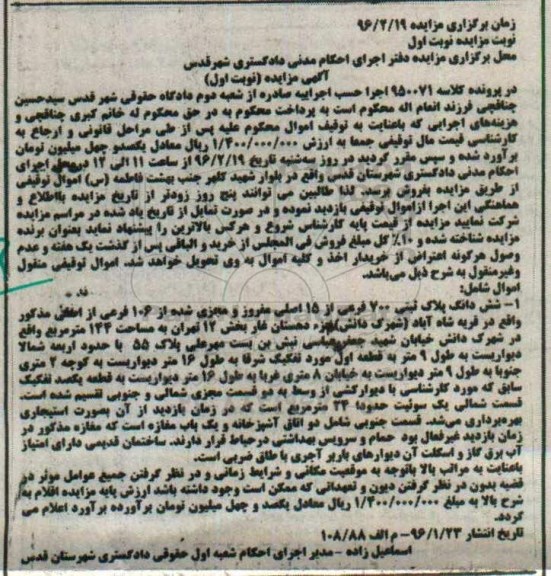 زمان برگزاری مزایده ۹۶/۲/۱۹
نوبت مزایده نوبت اول
محل برگزاری مزایده دفتر اجرای احکام مدنی دادگستری شهرقدس
آگهی مزایده (نوبت اول)
در پرونده کلاسه ۹۵۰۰۷۱ اجرا حسب اجراییه صادره از شعبه دوم دادگاه حقوقی شهر قدس سیدحسین
چناقچی فرزند انعام اله محکوم است به پرداخت محکوم به در حق محکوم له خانم کبری چناقچی و
هزینه‌های اجرایی که باعنایت به توقیف اموال محکوم علیه پس از طی مراحل قانونی و ارجاع به
کارشناسی قیمت مال توقیفی جمعا به ارزش ۱/۴۰۰/۰۰۰/۰۰۰ ریال معادل یکصدو چهل میلیون تومان
برآورد شده و سپس مقرر گردید در روز سه‌شنبه تاریخ ۹۶/۲/۱۹ از ساعت ۱۱ الی ۱۲ در محل اجرای
احکام مدنی دادگستری شهرستان قدس واقع در بلوار شهید کلهر جنب بهشت فاطمه (س) اموال توقیفی
از طریق مزایده بفروش برسد. لذا طالبین می توانند پنج روز زودتر از تاریخ مزایده بااطلاع و
هماهنگی این اجرا ازاموال توقیفی بازدید نموده و در صورت تمایل از تاریخ یاد شده در مراسم مزایده
شرکت نمایید مزایده از قیمت پایه کارشناس شروع و هرکس بالاترین را پیشنهاد نماید بعنوان برنده
مزایده شناخته شده و ۱۰٪ کل مبلغ فروش فی المجلس از خرید و الباقی پس از گذشت یک هفته و عدم
وصول هرگونه اعتراض از خریدار اخذ و کلیه اموال به وی تحویل خواهد شد. اموال توقیفی منقول
وغیرمنقول به شرح ذیل می‌باشد.
اموال شامل:
۱- شش دانگ پلاک ثبتی ۷۰۰ فرعی از ۱۵ اصلی مفروز و مجزی شده از ۱۰۶ فرعی از اصلی مذکور
واقع در قریه شاه آباد (شهرک دانش) جزء دهستان غار بخش ۱۲ تهران به مساحت ۱۴۴ مترمربع واقع
در شهرک دانش خیابان شهید جعفر عباسی نبش بن بست مهرعلی پلاک ۵۵ با حدود اربعه شمالا
دیواریست به طول ۹ متر به قطعه اول مورد تفکیک شرقا به طول ۱۶ متر دیواریست به کوچه ۲ متری
جنوبا به طول ۹ متر دیواریست به خیابان ۸ متری غربا به طول ۱۶ متر دیواریست به قطعه یکصد تفکیک
سابق که مورد کارشناسی با دیوارکشی از وسط به دو قسمت مجزی شمالی و جنوبی تقسیم شده است.
قسمت شمالی یک سوئیت حدودا ۳۴ مترمربع است که در زمان بازدید از آن بصورت استیجاری
بهره‌برداری می‌شد. قسمت جنوبی شامل دو اتاق آشپزخانه و یک باب مغازه است که مغازه مذکور در
زمان بازدید غیرفعال بود حمام و سرویس بهداشتی درحیاط قرار دارند. ساختمان قدیمی دارای امتیاز
آب برق گاز و اسکلت آن دیوارهای باربر آجری با طاق ضربی است.
باعنایت به مراتب بالا باتوجه به موقعیت مکانی و شرایط زمانی و در نظر گرفتن جمیع عوامل موثر در
قضیه بدون در نظر گرفتن دیون و تعهداتی که ممکن است وجود داشته باشد ارزش پایه مزایده اقلام به
شرح بالا به مبلغ ۱/۴۰۰/۰۰۰/۰۰۰ ریال معادل یکصد و چهل میلیون تومان برآورده برآورد اعلام می
گردد.
تاریخ انتشار ۹۶/۱/۲۳- م الف ۱۰۸/۸۸
اسماعیل زاده - مدیر اجرای احکام شعبه اول حقوقی دادگستری شهرستان قدس